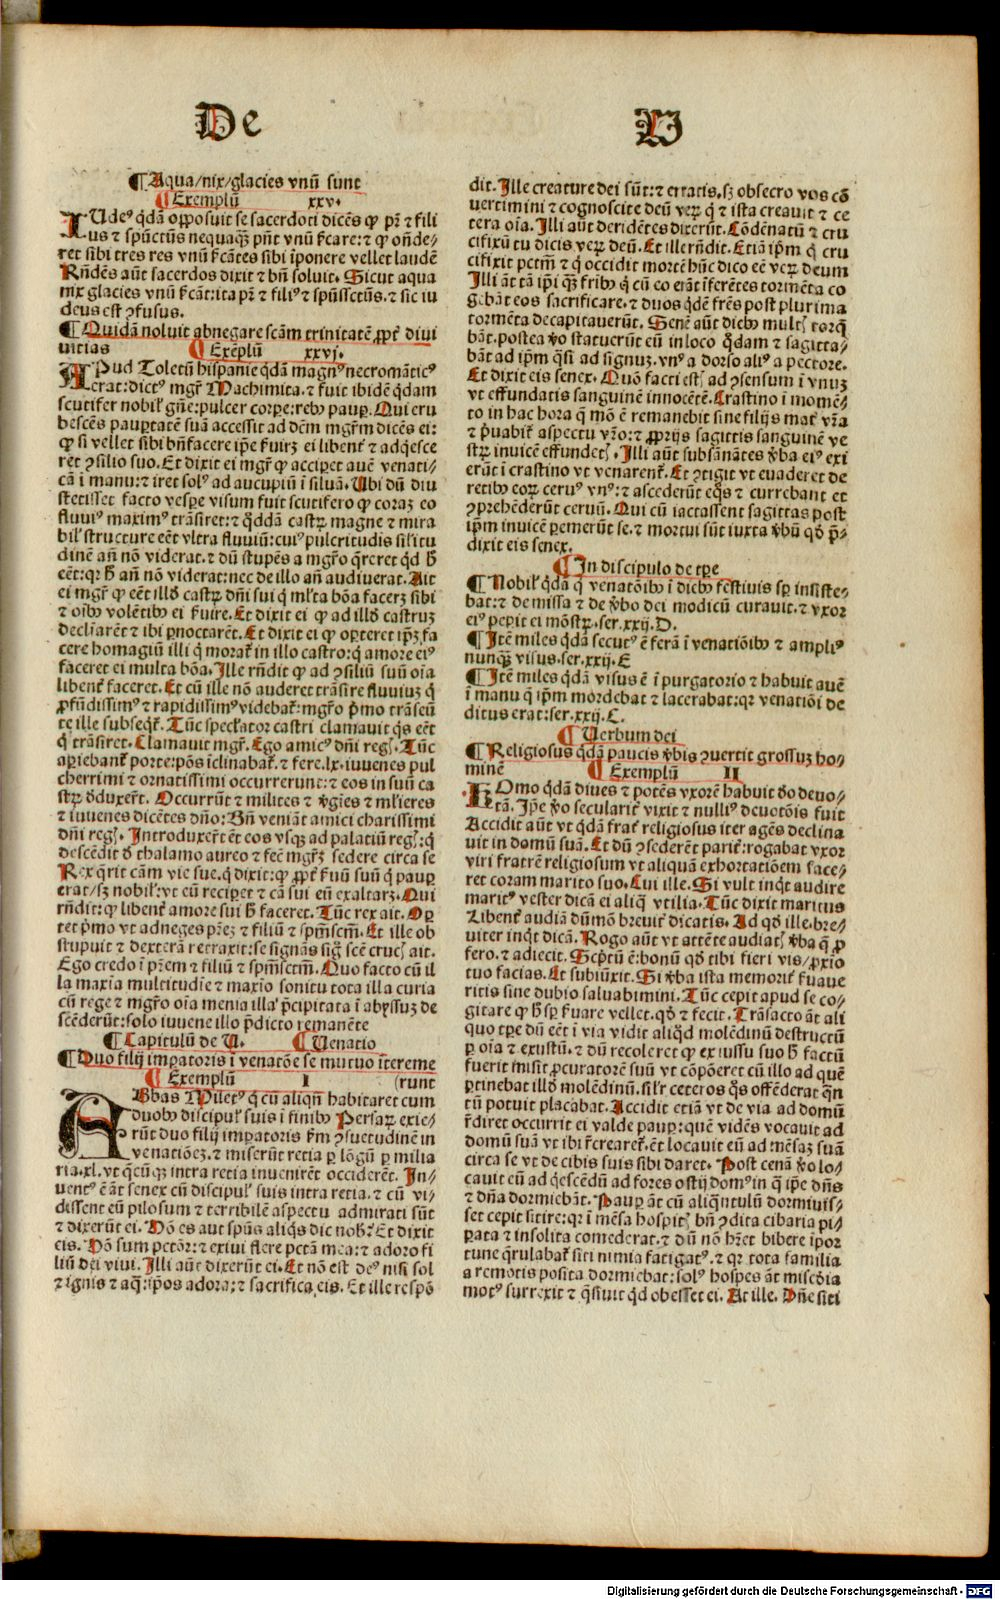 De V
¶ Aqua/nix/glacies vnū sunt
¶ Exemplū xxv.
IUdeꝰ qdā opposuit se sacerdoti dicēs ꝙ pr̄ ⁊ fili
us ⁊ spūsctūs nequaqꝫ pn̄t vnū f̄care: ⁊ ꝙ on̄de⸗
ret sibi tres res vnū f̄cātes sibi īponere vellet laudē
Rn̄dēs aūt sacerdos dixit ⁊ bn̄ soluit. Sicut aqua
nix glacies vnū f̄cāt: ita pr̄ ⁊ filiꝰ ⁊ spūssctūs. ⁊ sic iu
deus est ꝯfusus.
¶ Quidā noluit abnegare scām trinitatē ꝓpt̄ diui
vitias ¶ Exēplū xxvj.
APud Toletū hispanie qdā magnꝰ necromāticꝰ
erat: dictꝰ mgr̄ Machimita. ⁊ fuit ibidē qdam
scutifer nobil̓ gn̄e: pulcer corpe: rebꝰ paup. Qui eru
bescēs paupertatē suā accessit ad dēm mgr̄m dicēs ei:
ꝙ si vellet sibi bn̄facere ip̄e f̄uirꝫ ei libent̄ ⁊ adqesce
ret ꝯsilio suo. Et dixit ei mgr̄ ꝙ acciperet auē venati⸗
cā i manu: ⁊ iret solꝰ ad aucupiū ī siluā. Ubi dū diu
stetisset facto vespe visum fuit scutifero ꝙ coraꝫ eo
fluuiꝰ maximꝰ trāsiret: ⁊ qddā castrꝫ magne ⁊ mira
bil̓ structure eēt vltra fluuiū: cuiꝰ pulcritudis sil̓itu
dinē an̄ nō viderat. ⁊ dū stupēs a mgr̄o q̄reret qd h̄
eēt: qꝛ h̄ an̄ nō viderat: nec de illo an̄ audiuerat. Ait
ei mgr̄ ꝙ eēt illd̓ castrꝫ dn̄i sui q ml̓ta bōa facerꝫ sibi
⁊ oībꝰ volētibꝰ ei f̄uire. Et dixit ei ꝙ ad illd̓ castruꝫ
decl̓narēt ⁊ ibi p̄noctarēt. Et dixit ei ꝙ oporteret ip̄ꝫ fa
cere homagiū illi q̄ morat̄ in illo castro: q amore eiꝰ
faceret ei multa bōa. Ille rn̄dit ꝙ ad ꝯsiliū suū oīa
libent̄ faceret. Et cū ille nō auderet trāsire fluuiuꝫ q̄
ꝓfūdissimꝰ ⁊ rapidissimꝰ videbat̄: mgr̄o p̄mo trāseū
te ille subseqt̄. Tūc speclator castri clamauit qs eēt
q̄ trāsiret. Clamauit mgr̄. Ego amicꝰ dn̄i regꝭ. Tūc
apiebant̄ porte: pōs īclinabat̄. ⁊ fere.lx. iuuenes pul
cherrimi ⁊ ornatissimi occurrerunt: ⁊ eos in suū ca
strꝫ d̓duxer̄t. Occurrūt ⁊ milites ⁊ v̓gīes ⁊ ml̓ieres
⁊ iuuenes dicētes dn̄o: Bn̄ veniāt amici charissimi
dn̄i regꝭ. Introduxer̄t ēt eos vsqꝫ ad palatiū regꝭ: q̄
descēdit d̓ thalamo aureo ⁊ fec̄ mgr̄ꝫ sedere circa se
Rex q̄rit cām vie sue. q̄ dixit: ꝙ ꝓpt̄ f̄uū suū q̄ paup
erat/sꝫ nobil̓: vt eū recipet ⁊ cā sui eū exaltarꝫ. Qui
rn̄dit: ꝙ libent̄ amore sui h̄ faceret. Tūc rex ait. Opꝫ
tet p̄mo vt adneges prēꝫ ⁊ filiū ⁊ spm̄scm̄. Et ille ob
stupuit ⁊ dexterā retraxit: se signās sig̓ scē crucꝭ ait.
Ego credo ī prēm ⁊ filiū ⁊ spm̄sctm̄. Quo facto cū il
la maxīa multitudīe ⁊ maxīo sonitu tota illa curia
cū rege ⁊ mgr̄o oīa menia illaꝰ p̄cipitata ī abyssuꝫ de
scēderūt: solo iuuene illo p̄dicto remanēte
¶ Capitulū de V. ¶ Uenatio
¶ Duo filij impatoris ī venatōe se mutuo īterreme
¶ Exemplū I (runt
ABbas Miletꝰ q̄ cū aliqn̄ habitaret cum
duobꝰ discipul̓ suis ī finibꝰ Persaꝝ exie⸗
rūt duo filij impatoris f̄m ꝯsuetudinē in
venatiōeꝫ. ⁊ miserūt retia p lōgū p milia
ria.xl. vt q̄cūqꝫ intra retia inuenirēt occiderēt. In⸗
uentꝰ ē āt senex cū discipul̓ suis intra retia. ⁊ cū vi⸗
dissent eū pilosum ⁊ terribilē aspectu admirati sūt
⁊ dixerūt ei. Hō es aut spūs aliqs dic nob̓? Et dixit
eis. Hō sum pctōr: ⁊ exiui flere pctā mea: ⁊ adoro fi
liū dei viui. Illi aūt dixerūt ei. Et nō est deꝰ nisi sol
⁊ ignis ⁊ aq̄: ip̄os adora; ⁊ sacrifica eis. Et ille respō
dit. Ille creature dei sūt: ⁊ erratis. sꝫ obsecro vos cō
uertimini ⁊ cognoscite deū veꝝ q̄ ⁊ ista creauit ⁊ ce
tera oīa. Illi aūt deridētes dixerūt. Cōdēnatū ⁊ cru
cifixū tu dicis veꝝ deū. Et ille rn̄dit. Etiā ip̄m q̄ cru
cifixit pctm̄ ⁊ q̄ occidit mortē hūc dico eē veꝝ deum
Illi āt tā ip̄i qꝫ fribꝰ q̄ cū eo erāt īferētes tormēta co
gebāt eos sacrificare. ⁊ duos qdē fr̄es post plurima
tormēta decapitauerūt. Senē aūt diebꝰ multꝭ torq̄
bāt. postea v̓o statuerūt eū in loco q̄dam ⁊ sagitta⸗
bāt ad ip̄m qsi ad signuꝫ. vnꝰ a dorso aliꝰ a pectore.
Et dixit eis senex. Quō facti estꝭ ad ꝯsensum ī vnuꝫ
vt effundatis sanguinē innocētē. Crastino ī momē⸗
to in hac hora q̄ mō ē remanebit sine filijs mat̄ vr̄a
⁊ p̄uabit̄ aspectu vr̄o: ⁊ ꝓprijs sagittis sanguinē ve
strꝫ inuicē effundetꝭ. Illi aūt subsānātes v̓ba eiꝰ exi
erūt ī crastino vt venarent̄. Et ꝯtigit vt euaderet de
retibꝰ eoꝝ ceruꝰ vnꝰ: ⁊ ascēderūt eq̄s ⁊ currebant et
ꝯprehēderūt ceruū. Qui cū iactassent sagittas post
ip̄m inuicē pemerūt se. ⁊ mortui sūt iuxta v̓bū qd̓ p̄⸗
dixit eis senex.
¶ In discipulo de tp̄e
¶ Nobil̓ qdā q̄ venatōibꝰ ī diebꝰ festiuis sp̄ insiste⸗
bat: ⁊ de missa ⁊ de v̓bo dei modicū curauit. ⁊ vxor
eiꝰ pepit ei mōstrꝫ. ser. xxij. D.
¶ Itē miles qdā secutꝰ ē ferā ī venatiōibꝰ ⁊ ampliꝰ
nunqꝫ visus. ser. xxij. E
¶ Itē miles qdā visus ē ī purgatorio ⁊ habuit auē
ī manu q̄ ip̄m mordebat ⁊ lacerabat: qꝛ venatiōi de
ditus erat: ser. xxij. C.
¶ Uerbum dei
¶ Religiosus qdā paucis v̓bis ꝯuertit grossuꝫ ho⸗
minē ¶ Exemplū II
HOmo qdā diues ⁊ potēs vxorē habuit d̓o deuo⸗
tā. Ip̄e v̓o seculariť vixit ⁊ nulliꝰ deuotōis fuit
Accidit aūt vt qdā frat̄ religiosus iter agēs declina
uit in domū suā. Et dū ꝯsederēt parit̄: rogabat vxor
viri fratrē religiosum vt aliquā exhortatiōem face⸗
ret coram marito suo. Cui ille. Si vult inqt audire
maritꝰ vester dicā ei aliq̄ vtilia. Tūc dixit maritus
Libent̄ audiā dūmō breuit̄ dicatis. Ad qd̓ ille. bre⸗
uiter inqt dicā. Rogo aūt vt attēte audiatꝭ v̓ba q̄ ꝓ
fero. ⁊ adiecit. Scptū ē: bonū qd̓ tibi fieri vis/ꝓxīo
tuo facias. Et subiūxit. Si v̓ba ista memorit̄ f̄uaue
ritis sine dubio saluabimini. Tūc cepit apud se co⸗
gitare ꝙ h̄ sp̄ f̄uare vellet. qd̓ ⁊ fecit. Trāsacto āt ali
quo tp̄e dū eēt ī via vidit aliqd̓ molēdinū destructū
p oīa ⁊ exustū. ⁊ dū recoleret ꝙ ex iussu suo h̄ factū
fuerit misit ꝓcuratorē suū vt cōpōeret cū illo ad quē
ptinebat illd̓ molēdinū. sil̓r ceteros q̄s offēderat qn̄
tū potuit placabat. Accidit etiā vt de via ad domū
r̄diret occurrit ei valde paup: quē vidēs vocauit ad
domū suā vt ibi r̄crearet̄. ēt locauit eū ad mēsaꝫ suā
circa se vt de cibis suis sibi daret. Post cenā v̓o lo⸗
cauit eū ad q̄escēdū ad fores ostij domꝰ in q̄ ip̄e dn̄s
⁊ dn̄a dormiebāt. Paup āt cū aliqntulū dormiuis⸗
set cepit sitire: qꝛ ī mēsa hospitꝭ bn̄ ꝯdita cibaria pi⸗
pata ⁊ insolita comederat. ⁊ dū nō hr̄et bibere īpor
tune q̄rulabat̄ siti nimia fatigatꝰ. ⁊ qꝛ tota familia
a remotis posita dormiebat: solꝰ hospes āt mis̄cdīa
motꝰ surrexit ⁊ q̄siuit qd obesset ei. At ille. Dn̄e siti
Digitalisierung gefördert durch die Deutsche Forschungsgemeinschaft - DFG